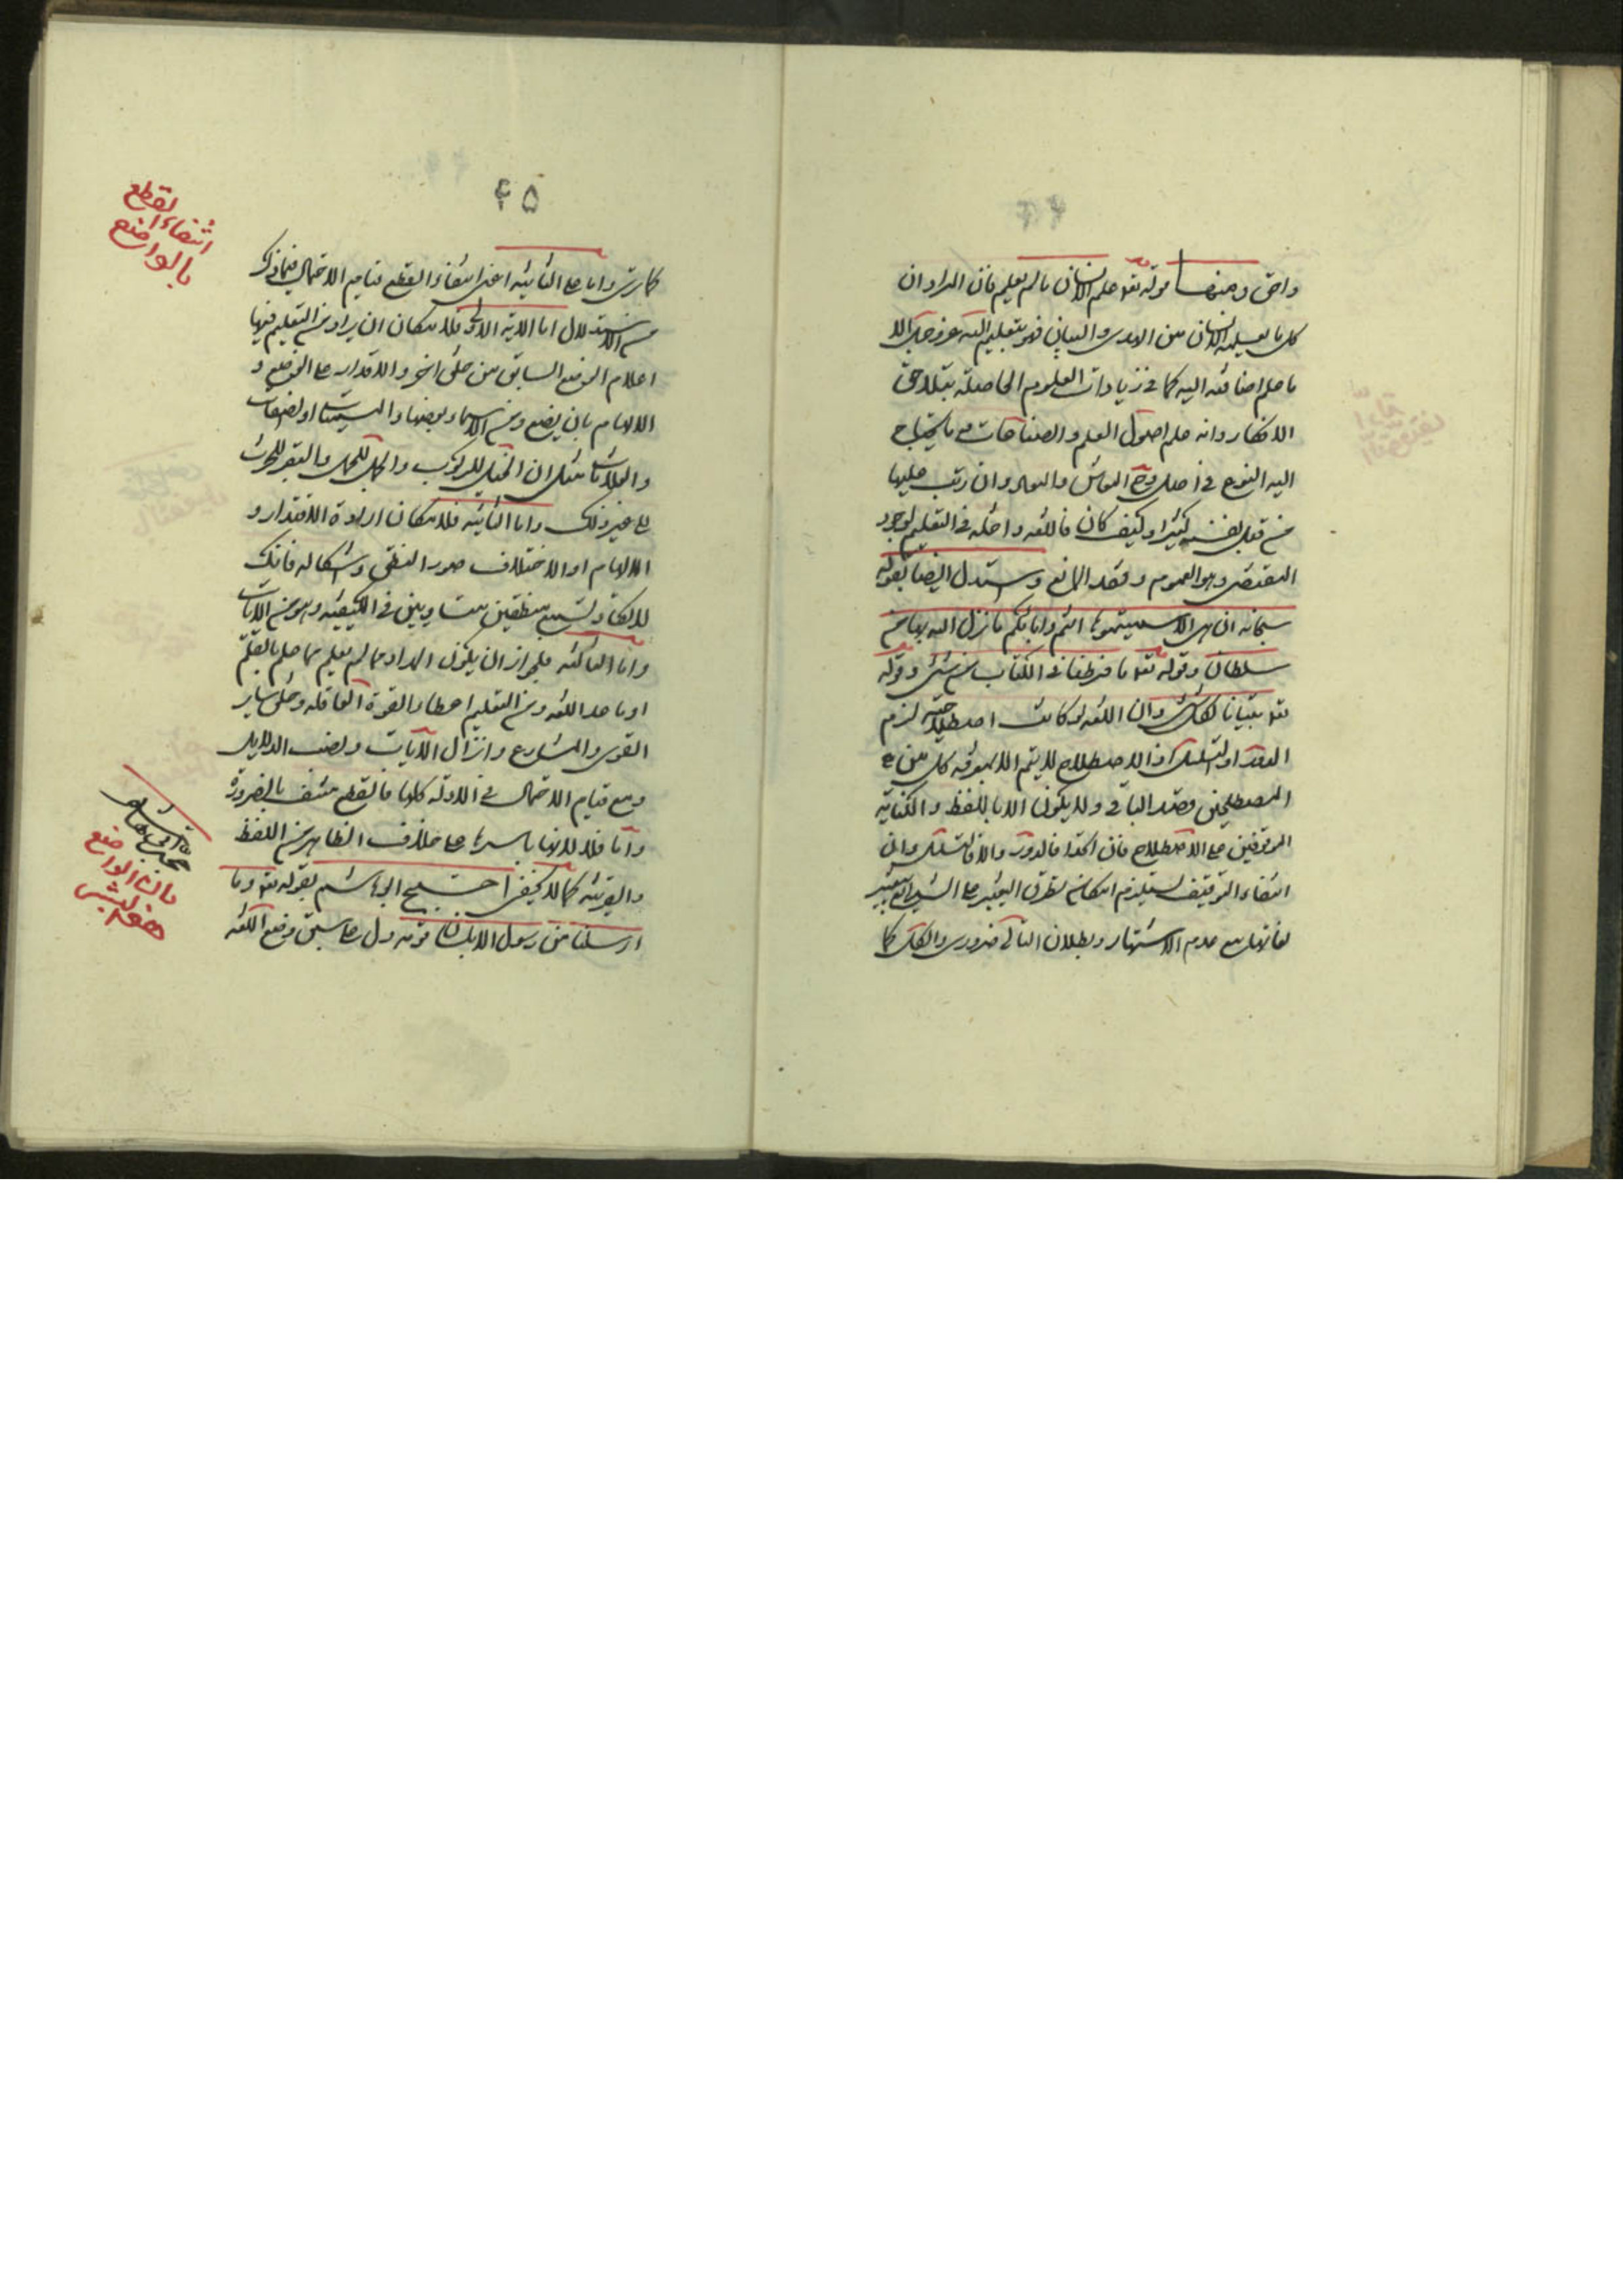 واحق ومنها قوله تعو علم الانسان ما لم يعلم فان المراد ان
كل ما يعلمه الانسان من الهدى والبيان فهو بتعليم الله عز وجل الا
ما علم اضافته اليه كما في زيادات العلوم الحاصلة بتلاحق
الافكار وانه علم اصول العلم والصناعات مع ما يحتاج
اليه النوع في اصلاح المعاش والمعاد وان رتب عليها
من قبل نفسه كثيرا وكيف كان فاللغه داخله في التعليم لوجود
المقتضى وهو العموم وفقد المانع واستدل ايضا بقوله
سبحانه ان هى الا اسماء سميتموها انتم واباؤكم ما نزل الله بها من
سلطان وقوله تعو ما فرطنا في الكتاب من شئ وقوله
تعو تبيانا لكل شئ وان اللغه لو كانت اصطلاحيه لزم
الدور او التسلسل اذ الاصطلاح لا يتم الا بمعرفه كل من
المصطلحين قصد الباقى ولا يكون الا باللفظ والكتابة
الموقوفين على الاصطلاح فان اتحدا فالدور والا فالتسلسل وان
انتفاء التوقيف يستلزم امكان تطرق التغيير على الشرع لتغيير
لغاتها مع عدم الاشتهار وبطلان التالى ضرورى والكل كما
۴۵
كما ترى واما على الثانيه اعنى انتفاء القطع فقيام الاحتمال فيما ذكر
من الاستدلال اما الاية الاولى فلامكان ان يراد من التعليم فيها
اعلام الوضع السابق من خلق اخر والاقدار على الوضع و
الالهام بان يضع ومن الاسماء بعضها والسميات او لصفات
والعلامات مثل ان الخيل للركوب والجمل للحمل والبقر للحرث
الى غير ذلك واما الثانيه فلامكان ارادة الاقتدار و
الالهام او الاختلاف صور النطق واشكاله فانك
لا تكاد تسمع منطقين متساويين في الكيفيه وهو من الايات
واما الثالثه فلجواز ان يكون المراد بما لم يعلم ما علم بالقلم
او ما عدا اللغه ومن التعليم اعطاء القوة العاقله وخلق ساير
القوى والمشارع وانزال الآيات ونصب الدلايل
ومع قيام الاحتمال في الادله كلها فالقطع منتف بالضرورة
واما فلا لانها باسرها على خلاف الظاهر من اللفظ
والقرينه كما لا يخفى احتج ابو هاشم بقوله تعو وما
ارسلنا من رسول الا بلسان قومه دل على سبق وضع اللغه
انتفاء القطع
بالواضع
بان الواضع
هو البشر